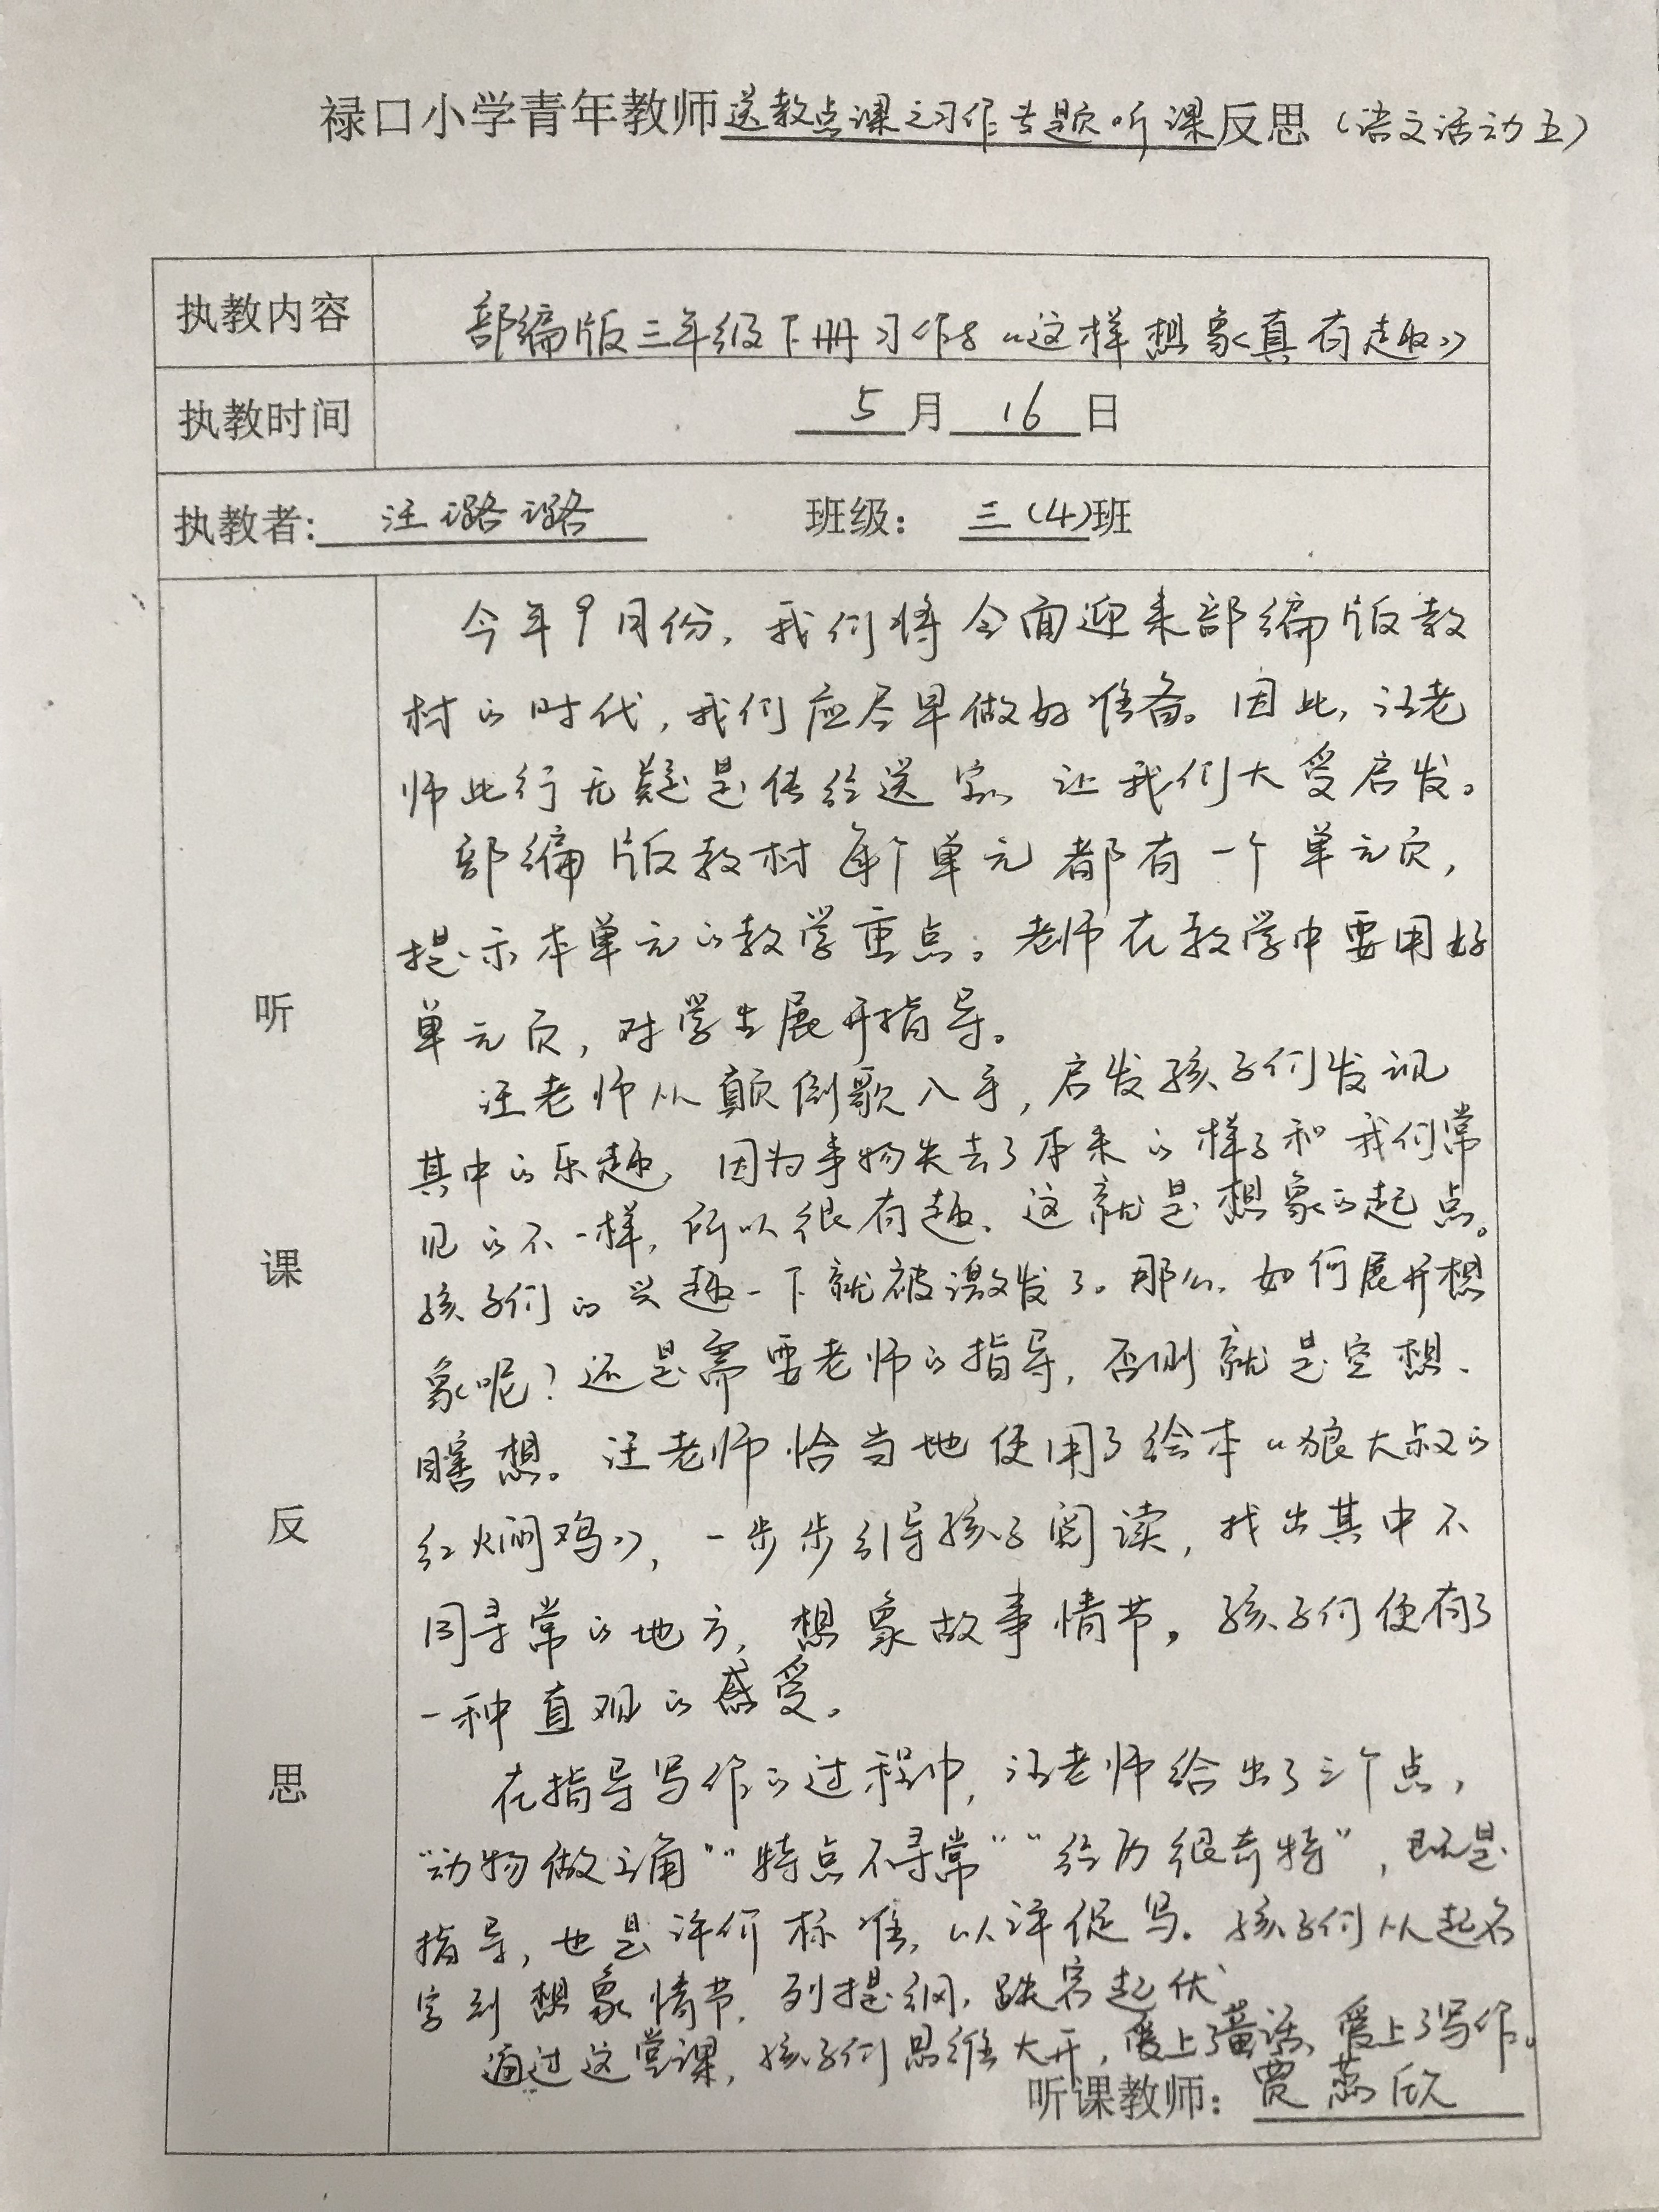 禄口小学青年教师送教点课之习作专题听课反思（语文活动五）
执教内容 部编版三年级下册习作8《这样想象真有趣》
执教时间 5月16日
执教者：汪璐璐 班级：三（4）班
听课反思
今年9月份，我们将全面迎来部编版教
材的时代，我们应尽早做好准备。因此，汪老
师此行无疑是传经送宝，让我们大受启发。
部编版教材每个单元都有一个单元页，
提示本单元的教学重点。老师在教学中要用好
单元页，对学生展开指导。
汪老师从颠倒歌入手，启发孩子们发现
其中的乐趣，因为事物失去了本来的样子和我们常
见的不一样，所以很有趣。这就是想象的起点。
孩子们的兴趣一下就被激发了。那么，如何展开想
象呢？还是需要老师的指导，否则就是空想、
瞎想。汪老师恰当地使用了绘本《狼大叔的
红焖鸡》，一步步引导孩子阅读，找出其中不
同寻常的地方，想象故事情节，孩子们便有了
一种直观的感受。
在指导写作的过程中，汪老师给出了三个点，
“动物做主角”“特点不寻常”“经历很奇特”，既是
指导，也是评价标准，以评促写。孩子们从起名
字到想象情节，列提纲，跌宕起伏
通过这堂课，孩子们思维大开，爱上了童话、爱上了写作。
听课教师：贾